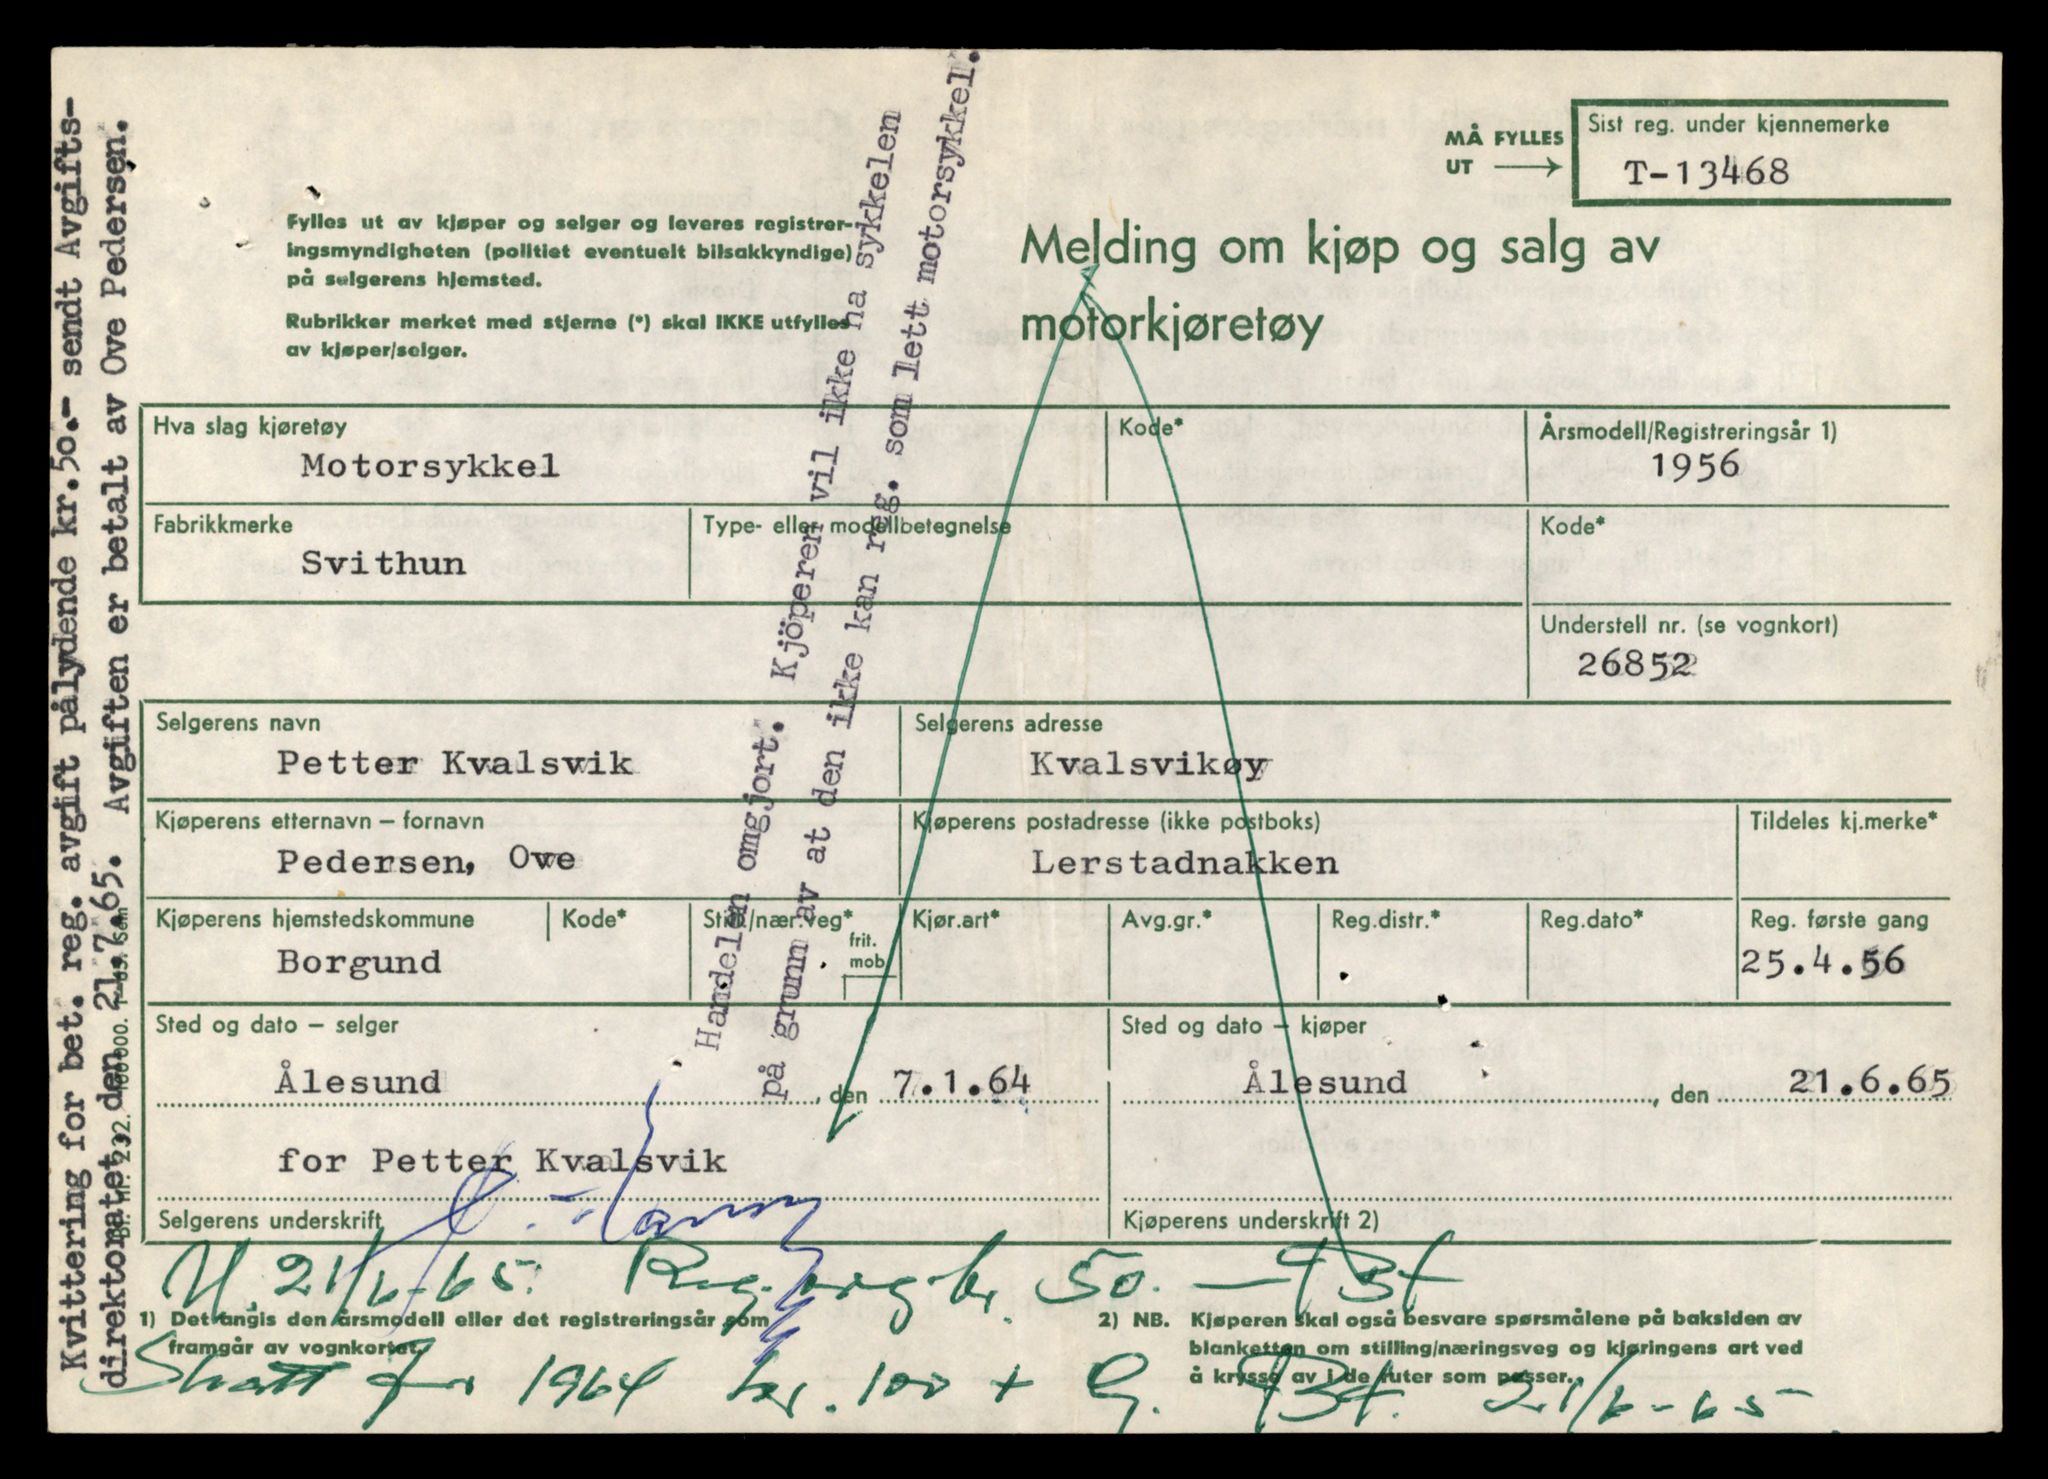 MÅ FYLLES
UT
Sist reg. under kjennemerke
T-13468
Fylles ut av kjøper og selger og leveres registrer-
ingsmyndigheten (politiet eventuelt bilsakkyndige)
på selgerens hjemsted.
Rubrikker merket med stjerne (*) skal IKKE utfylles
av kjøper/selger.
Melding om kjøp og salg av
motorkjøretøy
Hva slag kjøretøy
Motorsykkel
Kode*
Årsmodell/Registreringsår 1)
1956
Fabrikkmerke
Svithun
Type- eller modellbetegnelse
Kode*
Understell nr. (se vognkort)
26852
Selgerens navn
Petter Kvalsvik
Selgerens adresse
Kvalsvikøy
Kjøperens etternavn – fornavn
Pedersen, Ove
Kjøperens postadresse (ikke postboks)
Lerstadnakken
Tildeles kj.merke*
Kjøperens hjemstedskommune
Borgund
Kode*
Still/nær.veg*
frit.
mob
Kjør.art*
Avg.gr.*
Reg.distr.*
Reg.dato*
Reg. første gang
25.4.56
Sted og dato – selger
Ålesund , den 7.1.64
Sted og dato – kjøper
Ålesund , den 21.6.65
for Petter Kvalsvik
Selgerens underskrift
Kjøperens underskrift 2)
21/6-65. Reg.avg. kr. 50.—
1) Det angis den årsmodell eller det registreringsår som
framgår av vognkortet.
2) NB. Kjøperen skal også besvare spørsmålene på baksiden av
blanketten om stilling/næringsveg og kjøringens art ved
å krysse av i de ruter som passer.
Skatt for 1964 kr. 100 + 21/6-65
Kvittering for bet. reg. avgift pålydende kr.50.- sendt Avgifts-
direktoratet den 21.7.65. Avgiften er betalt av Ove Pedersen.
Handelen omgjort. Kjöperen vil ikke ha sykkelen
på grunn av at den ikke kan reg. som lett motorsykkel.